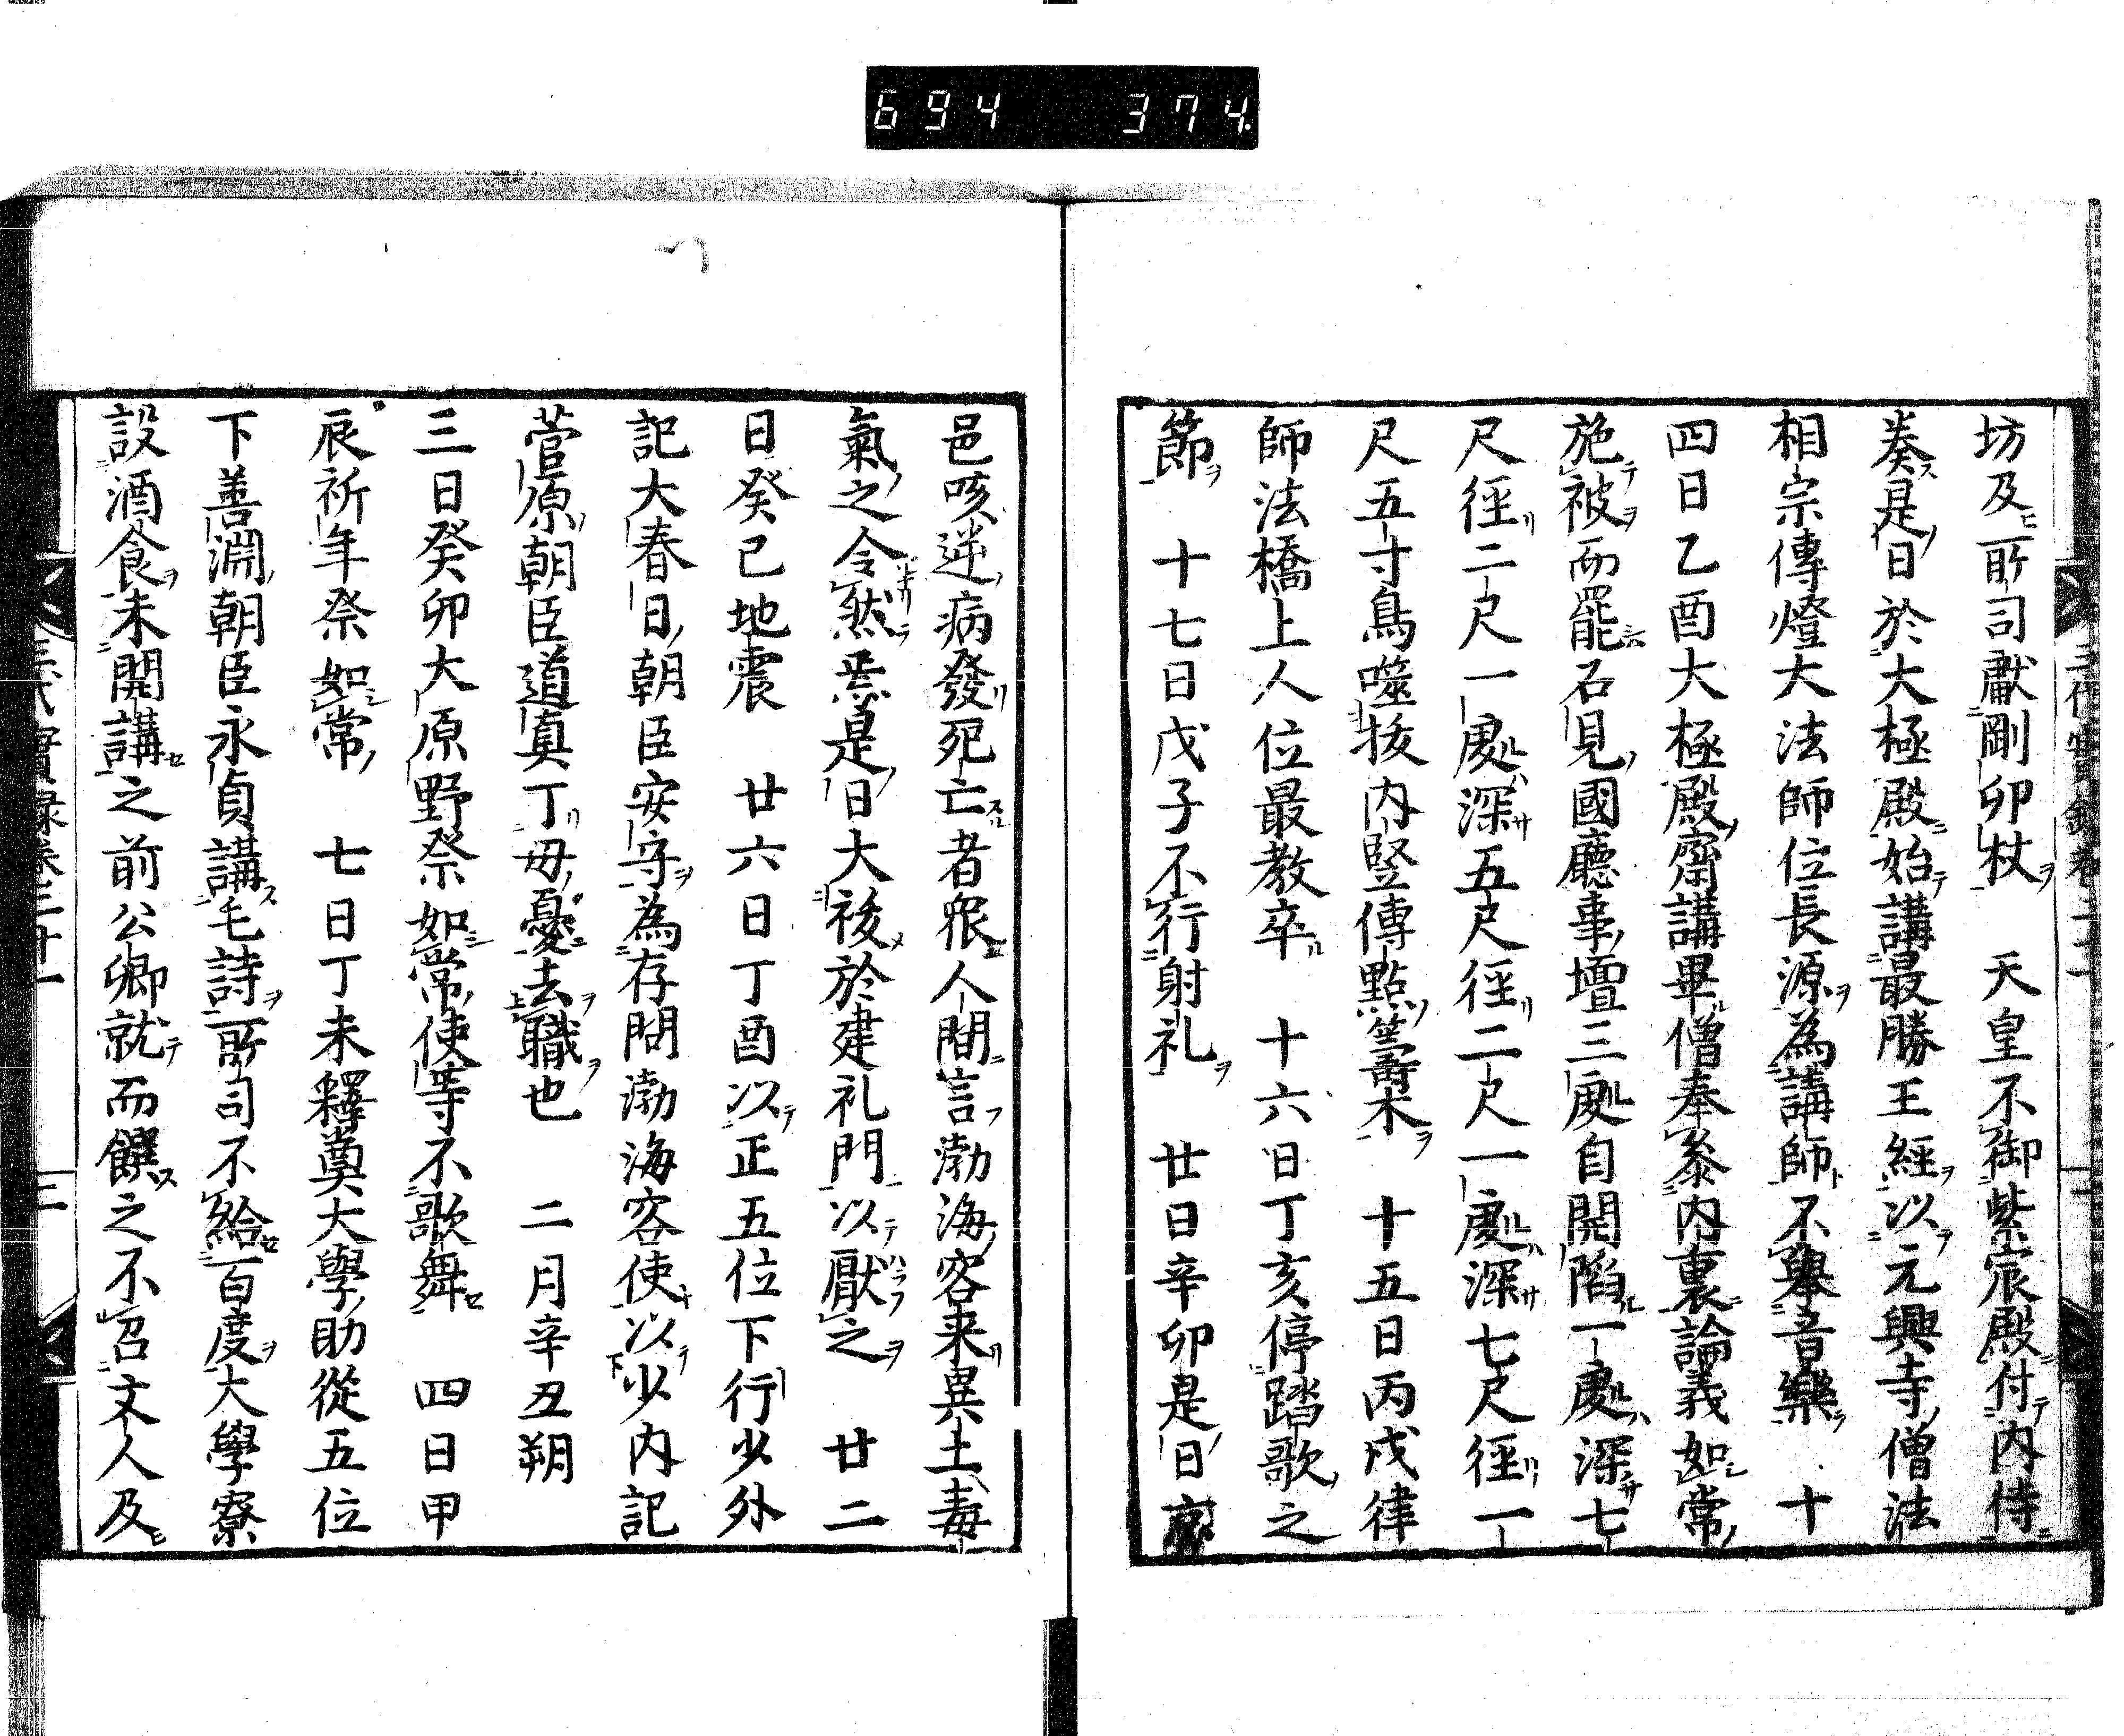 694 374
坊及所司獻剛卯杖　天皇不御紫宸殿付内侍
奏是日於大極殿始講最勝王經以元興寺僧法
相宗傳燈大法師位長源為講師不舉音樂　十
四日乙酉大極殿齋講畢僧奉參内裏論義如常
施被而罷石見國廳事壇三處自開陷一處深七
尺徑二尺一處深五尺徑二尺一處深七尺徑一
尺五寸鳥噬拔内竪傳點籌木　十五日丙戌律
師法橋上人位最教卒　十六日丁亥停踏歌之
節　十七日戊子不行射礼　廿日辛卯是日京
邑咳逆病發死亡者衆人間言渤海客来異土毒
氣之令然焉是日大祓於建礼門以厭之　廿二
日癸巳地震　廿六日丁酉以正五位下行少外
記大春日朝臣安守為存問渤海客使以少内記
菅原朝臣道真丁母憂去職也　二月辛丑朔
三日癸卯大原野祭如常使等不歌舞　四日甲
辰祈年祭如常　七日丁未釋奠大學助從五位
下善淵朝臣永貞講毛詩所司不給百度大學寮
設酒食未開講之前公卿就而饌之不召文人及
三代實録卷二十一　二